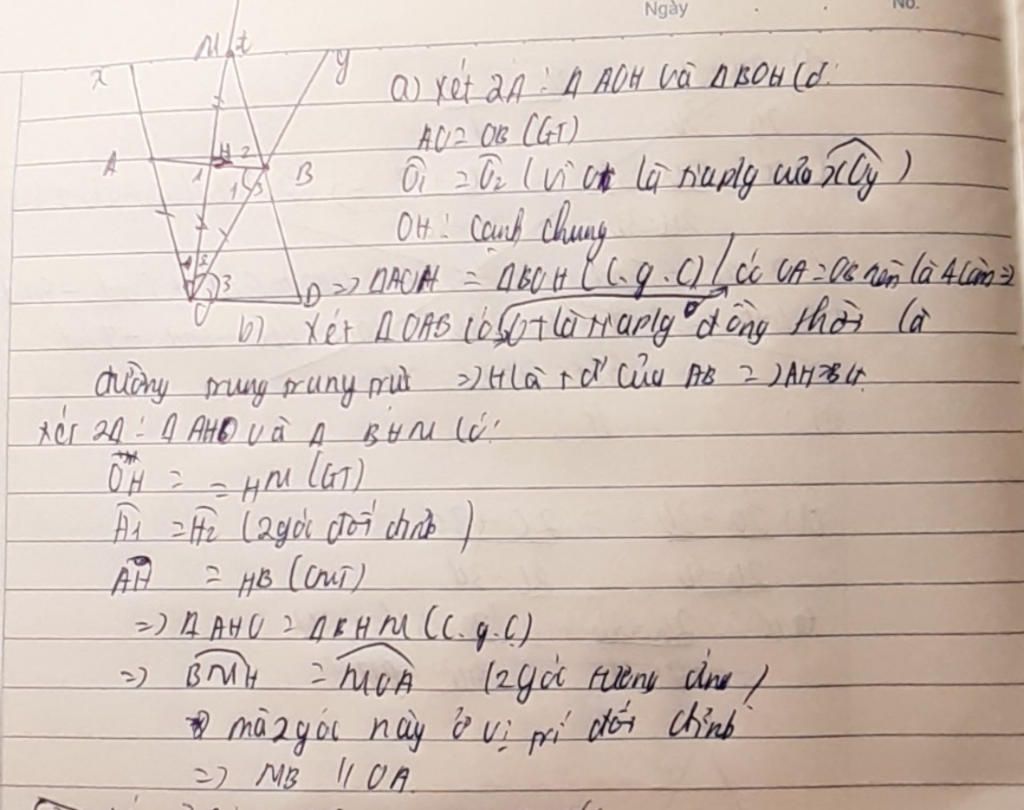 Ngày No.
M t
x y
A H 2 B
1 1 3
1 2 3
O D
a) Xét 2Δ : Δ AOH và ΔBOH có:
AO = OB (GT)
Ô1 = Ô2 (vì Ot là tia plg của xOy)
OH : cạnh chung
=> ΔAOH = ΔBOH (c.g.c) / có OA = OB nên là Δ cân =>
b) Xét ΔOAB có Ot là tia plg đồng thời là
đường trung trung trực => H là tđ của AB => AH = BH.
xét 2Δ : Δ AHO và Δ BHM có:
OH = = HM (GT)
H1 = H2 (2 góc đối đỉnh)
AH = HB (CMT)
=> Δ AHO = ΔBHM (c.g.c)
=> BMH = MOA (2 góc tương ứng)
mà 2 góc này ở vị trí đối đỉnh
=> MB // OA.